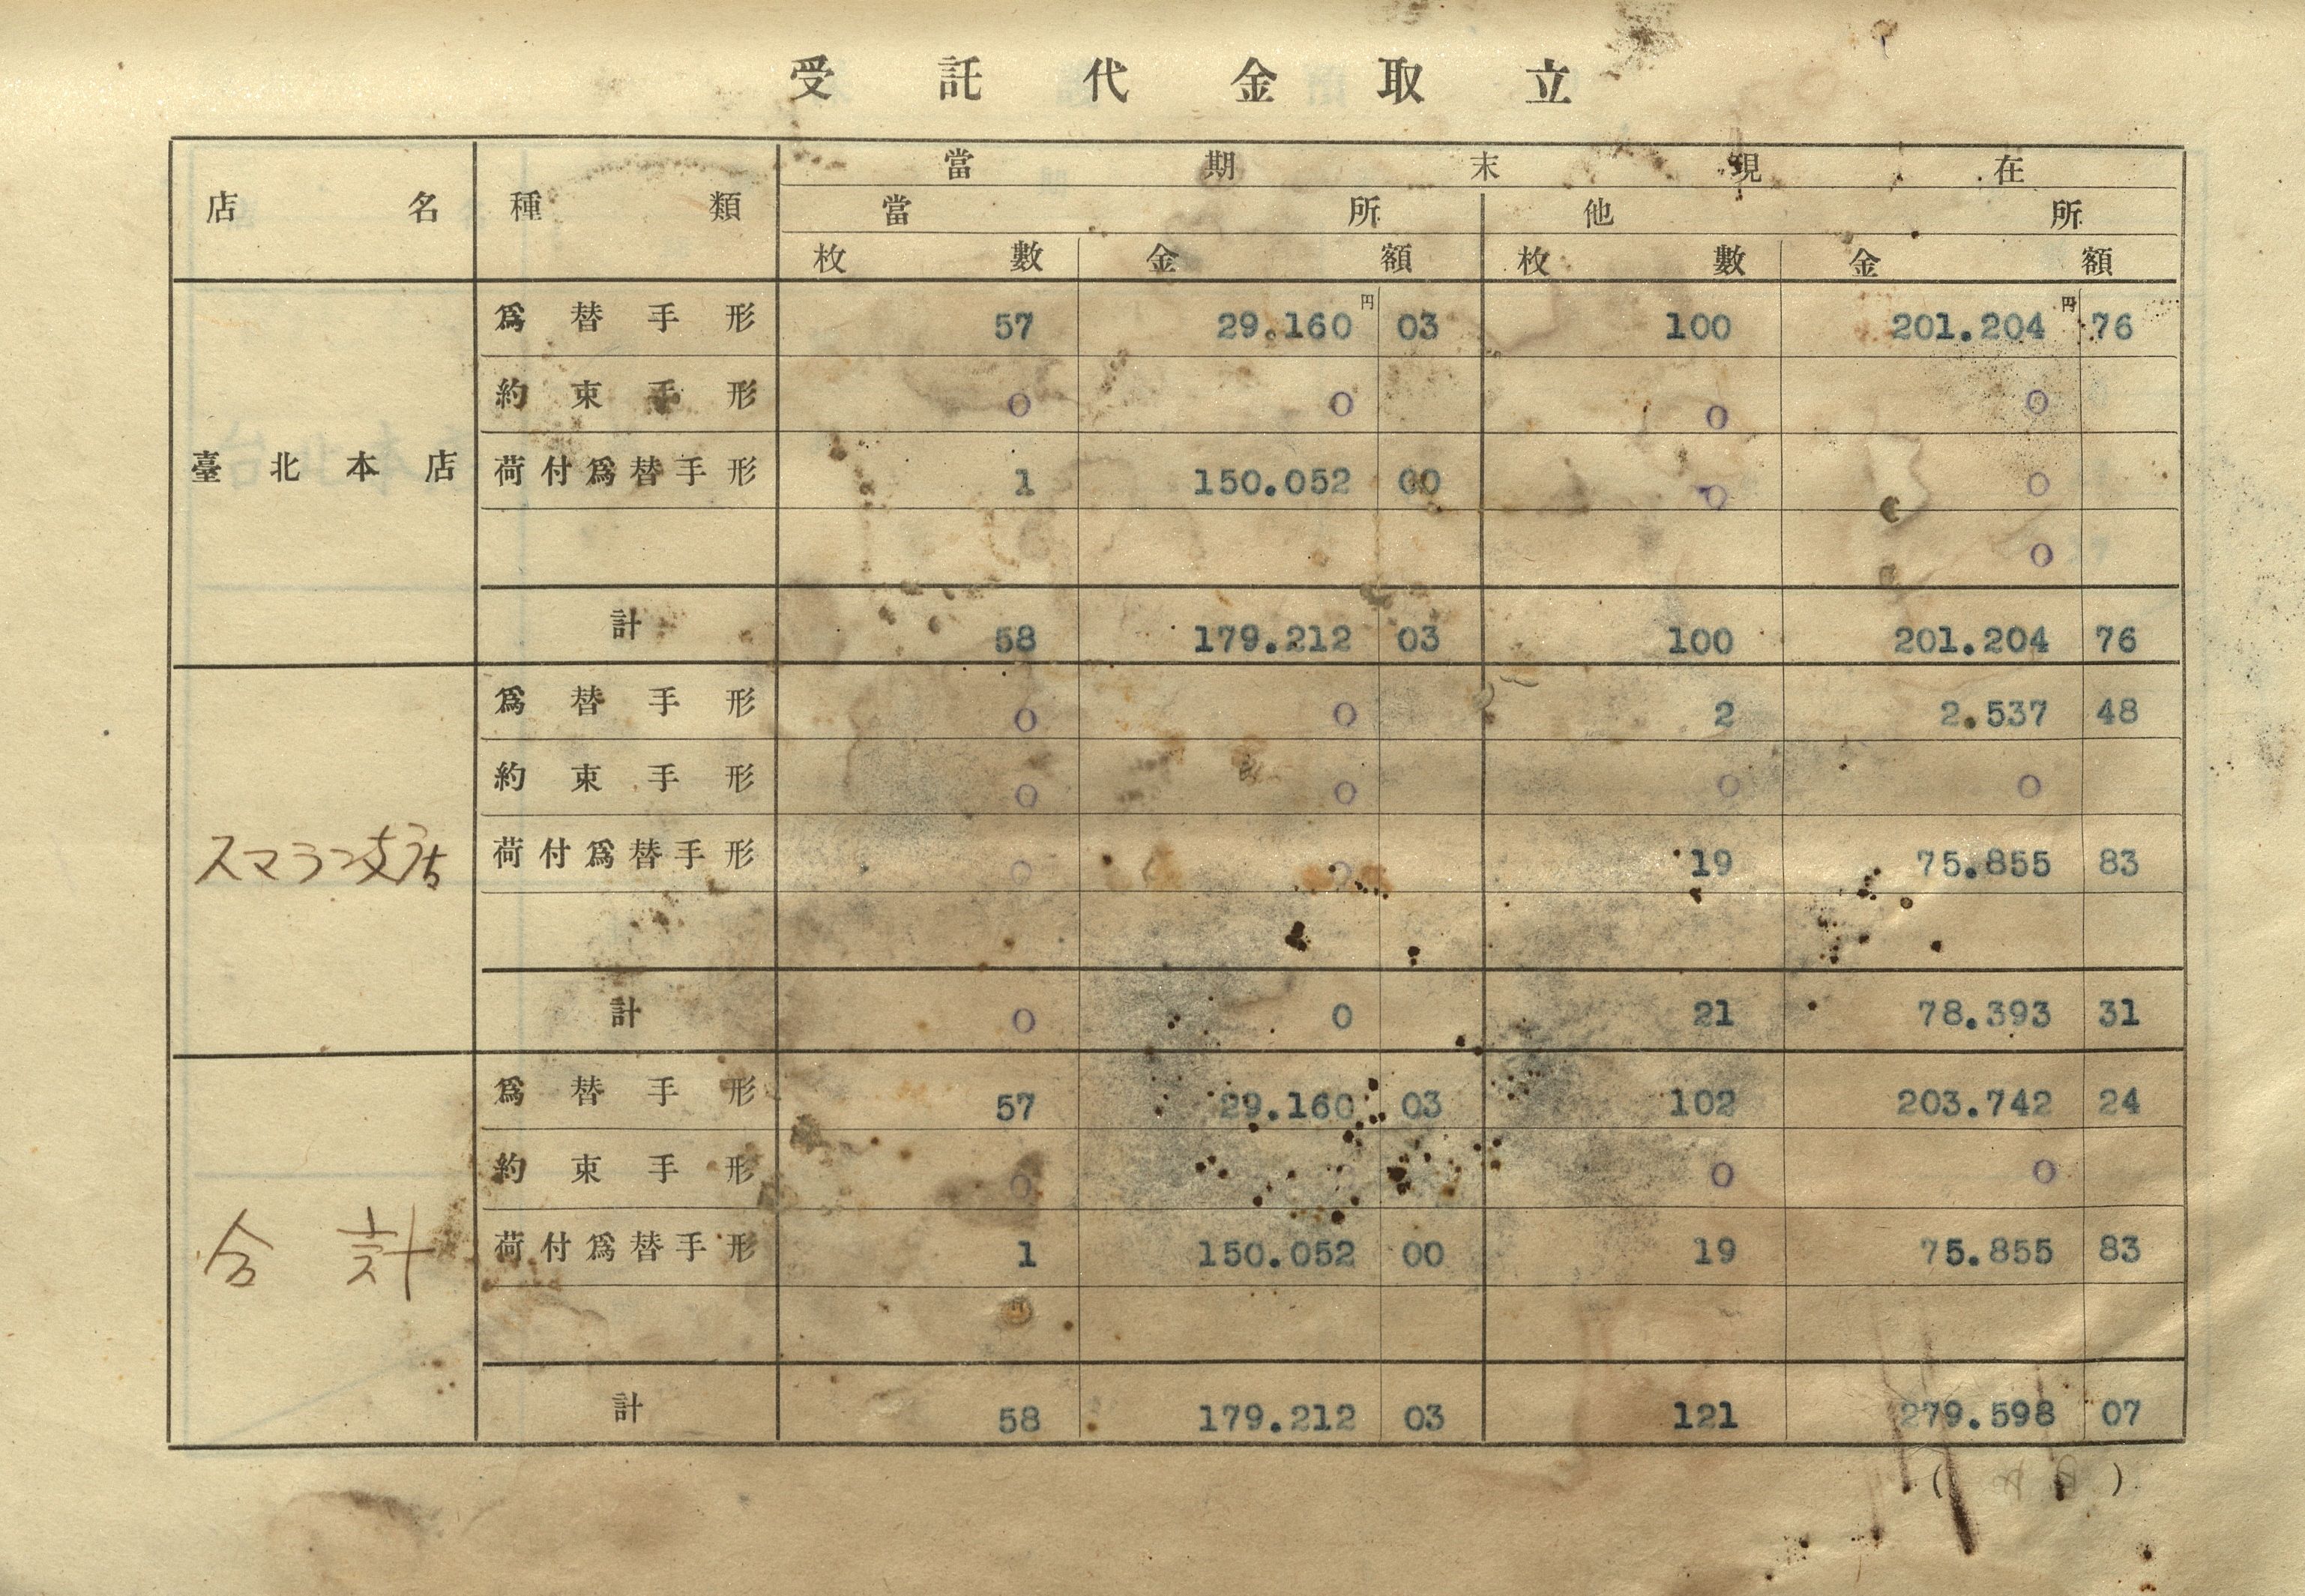 受託代金取立
店名 種類 當期末現在
當所 他所
枚數 金額 枚數 金額
臺北本店
爲替手形 57 29.160円 03 100 201.204円 76
約束手形 0 0 0 0
荷付爲替手形 1 150.052 00 0 0
0
計 58 179.212 03 100 201.204 76
スマラン支店
爲替手形 0 0 2 2.537 48
約束手形 0 0 0 0
荷付爲替手形 0 0 19 75.855 83
計 0 0 21 78.393 31
合計
爲替手形 57 29.160 03 102 203.742 24
約束手形 0 0 0
荷付爲替手形 1 150.052 00 19 75.855 83
計 58 179.212 03 121 279.598 07
( )